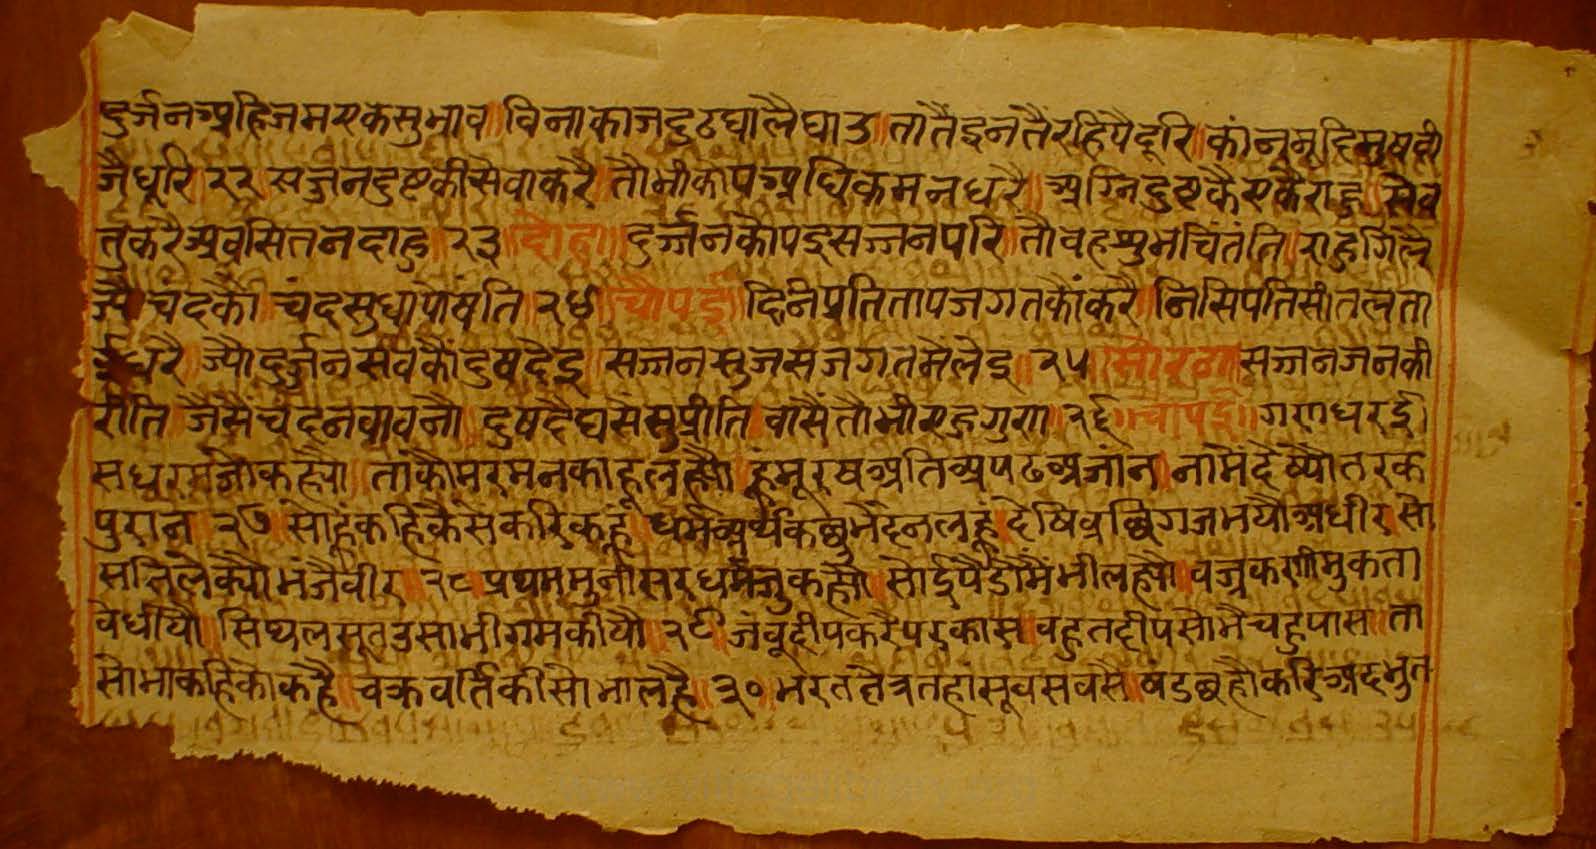 दुर्जन अहि जम एक सुभाव ॥ विना काज दुठ घालै घाउ ॥ तातै इनतै रहि पै दूरि ॥ कांनन मूदि मुष वी
जै धूरि ॥ २२ सज्जन दुष्ट की सेवा करै ॥ तौ भी कोप अधिक मन धरै ॥ अग्नि दुष्ट कै एकै राहु ॥ सेव
त करै अवसि तन दाहु ॥ २३ ॥ दोहा ॥ दुर्ज्जन कोपइ सज्जन परि ॥ तौ वह शुभ चिंतंति ॥ राहु गिलै
जै चंद कौ ॥ चंद सुधा पोषति ॥ २४ ॥ चौपई ॥ दिन प्रति ताप जगत कौं करै ॥ निसिपति सीतलता
धरै ॥ ज्यौ दुर्जन सव कौं दुष देइ ॥ सज्जन सुजस जगत मैं लेइ ॥ २५ ॥ सोरठा ॥ सज्जन जन की
रीति ॥ जैसै चंदन वावनौ ॥ दुष दै घसै सुप्रीति ॥ वासै तौ भी एह गुण ॥ २६ ॥ चौपई ॥ गणधरई
स धरम जो कह्यौ ॥ ताकौ मरम न काहू लह्यौ ॥ हूं मूरष अति अपढ अजांन ॥ नां मै देष्यौ तरक
पुरान ॥ २७ ॥ सो हूं कहि कैसै करि कहूं ॥ धर्म अर्थ कछु भेद न लहूं ॥ देषि वृछि गज भयौ अधीर ॥ सो
सलिलै क्यौ भंजै वीर ॥ २८ प्रथम मुनीसर धर्म जु कह्यौ ॥ सोई पैंडौ मैं भी लह्यौ ॥ वज्र करणी मुकता
वेधीयौ ॥ सिथल सूत उसामी गम कीयौ ॥ २९ जंवूदीप करै परकास ॥ वहुत दीप सोभै चहु पास ॥ ता
सोभा कहि को कहै ॥ चक्रवर्ति की सोभा लहै ॥ ३० ॥ भरत षेत्र तहां सूवस वसै ॥ षंड छहौ करि अदभुत